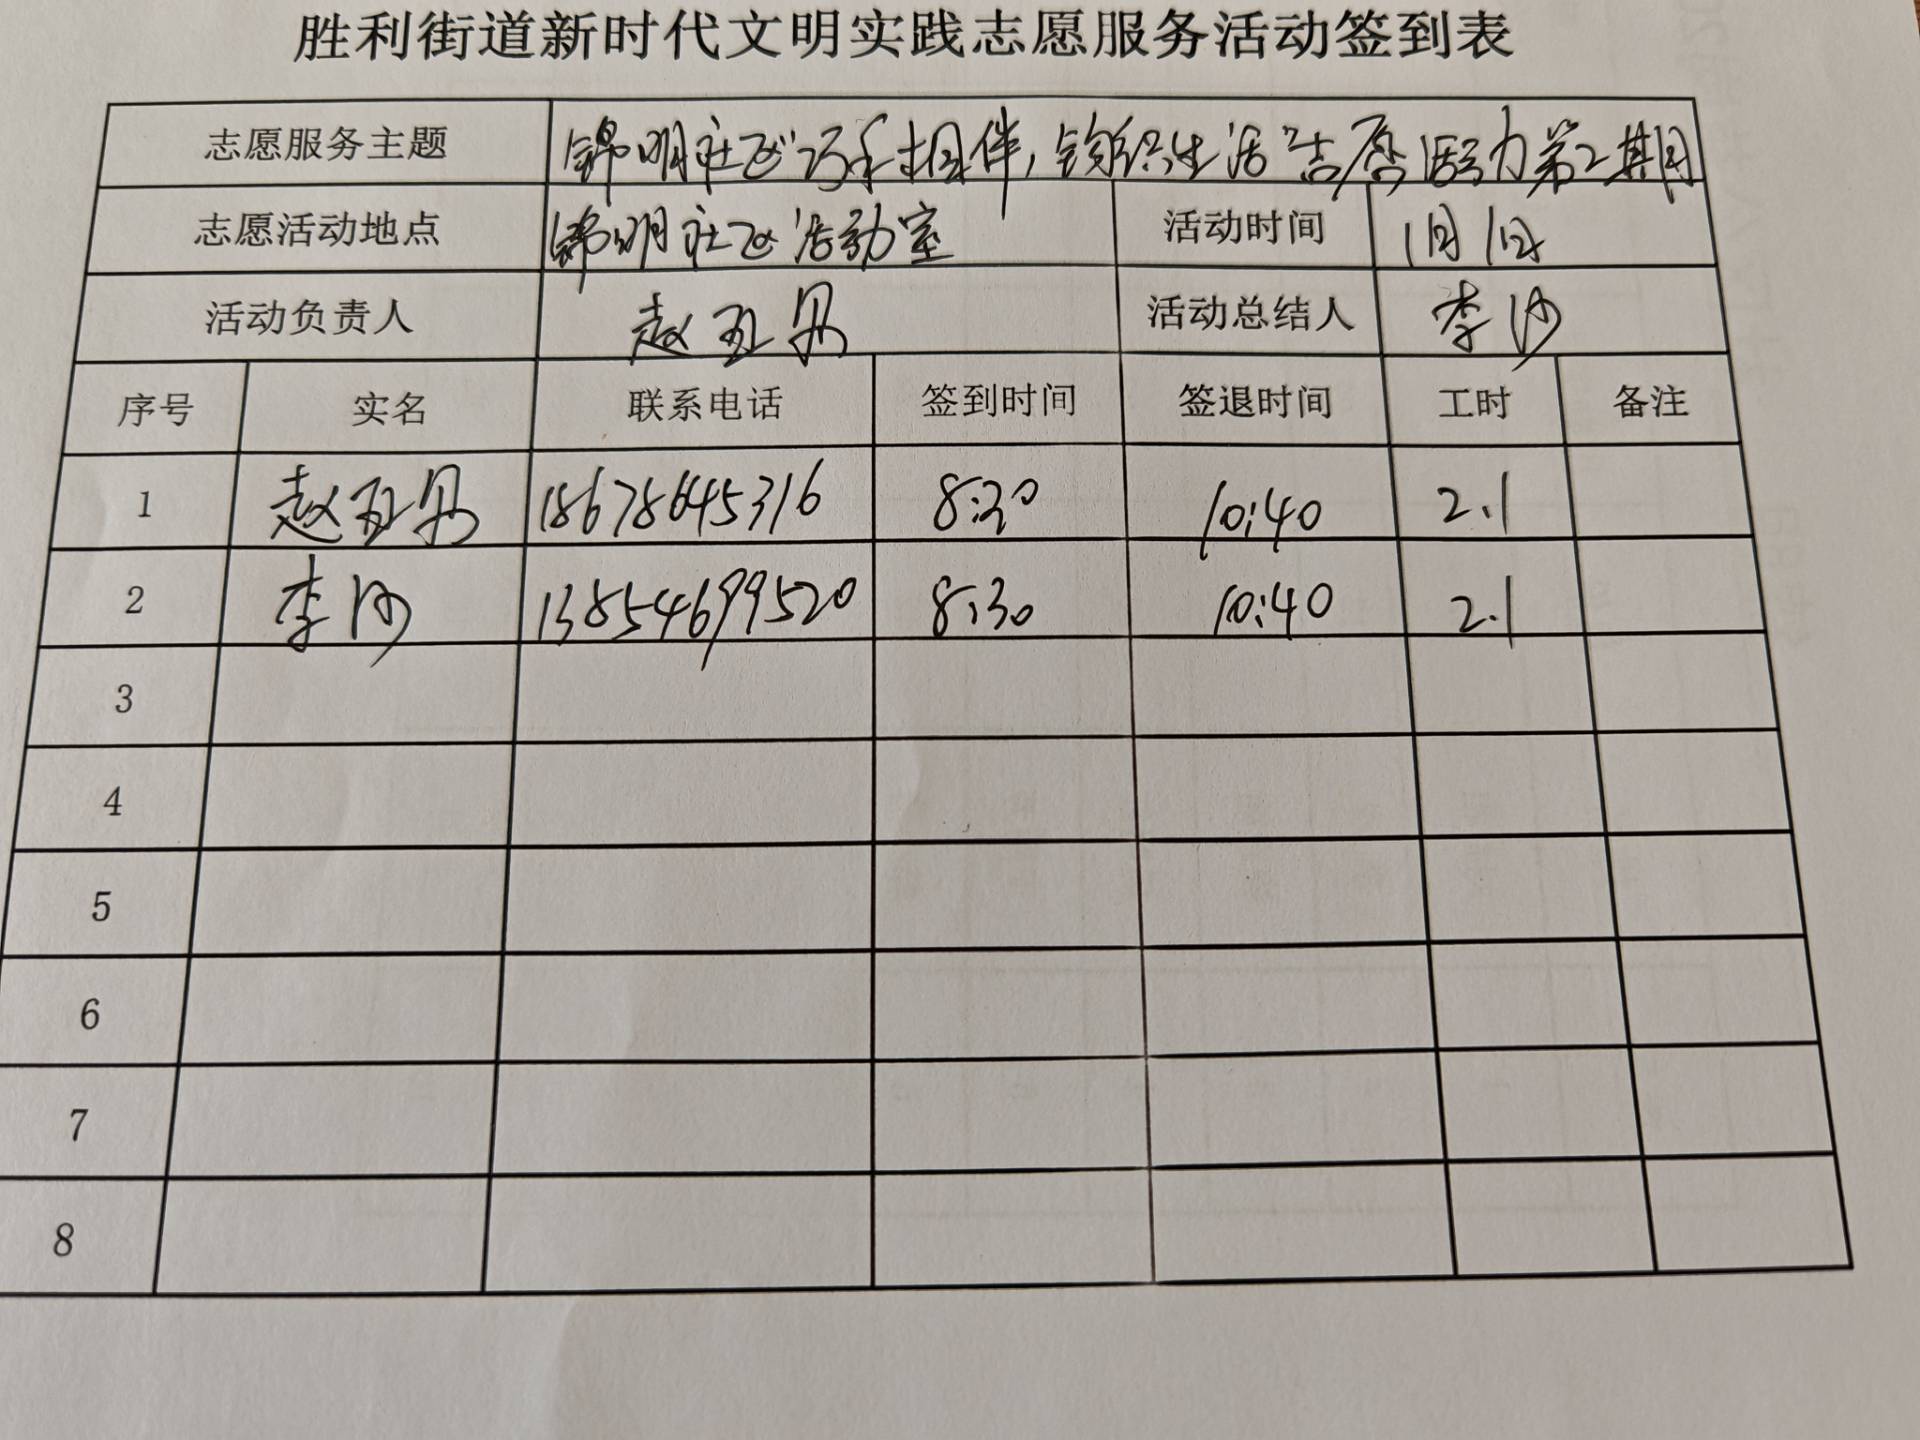 胜利街道新时代文明实践志愿服务活动签到表
志愿服务主题 锦明社区“巧手相伴，钩织生活”志愿活动第2期
志愿活动地点 锦明社区活动室 活动时间 1月1日
活动负责人 赵亚男 活动总结人 李沙
序号 实名 联系电话 签到时间 签退时间 工时 备注
1 赵亚男 18678645316 8:30 10:40 2.1
2 李沙 13854699520 8:30 10:40 2.1
3
4
5
6
7
8